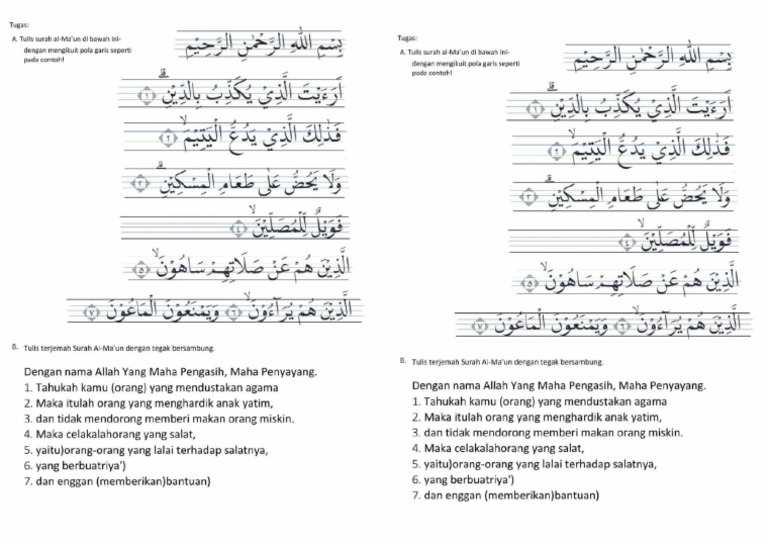 Tugas:
A. Tulis surah al-Ma'un di bawah ini-
dengan mengikuit pola garis seperti
pada contoh!
بِسْمِ اللّٰهِ الرَّحْمٰنِ الرَّحِيْمِ
اَرَءَيْتَ الَّذِيْ يُكَذِّبُ بِالدِّيْنِۗ ١
فَذٰلِكَ الَّذِيْ يَدُعُّ الْيَتِيْمَۙ ٢
وَلَا يَحُضُّ عَلٰى طَعَامِ الْمِسْكِيْنِۗ ٣
فَوَيْلٌ لِّلْمُصَلِّيْنَۙ ٤
الَّذِيْنَ هُمْ عَنْ صَلَاتِهِمْ سَاهُوْنَۙ ٥
الَّذِيْنَ هُمْ يُرَاۤءُوْنَۙ ٦ وَيَمْنَعُوْنَ الْمَاعُوْنَ ٧
B. Tulis terjemah Surah Al-Ma'un dengan tegak bersambung.
Dengan nama Allah Yang Maha Pengasih, Maha Penyayang.
1. Tahukah kamu (orang) yang mendustakan agama
2. Maka itulah orang yang menghardik anak yatim,
3. dan tidak mendorong memberi makan orang miskin.
4. Maka celakalahorang yang salat,
5. yaitu)orang-orang yang lalai terhadap salatnya,
6. yang berbuatriya')
7. dan enggan (memberikan)bantuan)
Tugas:
A. Tulis surah al-Ma'un di bawah ini-
dengan mengikuit pola garis seperti
pada contoh!
بِسْمِ اللّٰهِ الرَّحْمٰنِ الرَّحِيْمِ
اَرَءَيْتَ الَّذِيْ يُكَذِّبُ بِالدِّيْنِۗ ١
فَذٰلِكَ الَّذِيْ يَدُعُّ الْيَتِيْمَۙ ٢
وَلَا يَحُضُّ عَلٰى طَعَامِ الْمِسْكِيْنِۗ ٣
فَوَيْلٌ لِّلْمُصَلِّيْنَۙ ٤
الَّذِيْنَ هُمْ عَنْ صَلَاتِهِمْ سَاهُوْنَۙ ٥
الَّذِيْنَ هُمْ يُرَاۤءُوْنَۙ ٦ وَيَمْنَعُوْنَ الْمَاعُوْنَ ٧
B. Tulis terjemah Surah Al-Ma'un dengan tegak bersambung.
Dengan nama Allah Yang Maha Pengasih, Maha Penyayang.
1. Tahukah kamu (orang) yang mendustakan agama
2. Maka itulah orang yang menghardik anak yatim,
3. dan tidak mendorong memberi makan orang miskin.
4. Maka celakalahorang yang salat,
5. yaitu)orang-orang yang lalai terhadap salatnya,
6. yang berbuatriya')
7. dan enggan (memberikan)bantuan)